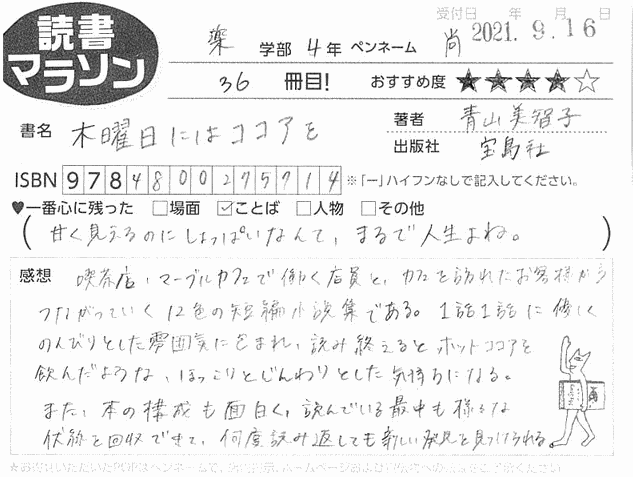 読書
マラソン
受付日 年 月 日
2021. 9. 16
薬 学部 4年 ペンネーム 尚
36 冊目! おすすめ度 ★★★★☆
書名 木曜日にはココアを
著者 青山美智子
出版社 宝島社
ISBN 9784800275714 ※「ー」ハイフンなしで記入してください。
♥一番心に残った □場面 ☑ことば □人物 □その他
(甘く見えるのにしょっぱいなんて、まるで人生よね。)
感想 喫茶店・マーブルカフェで働く店員と、カフェを訪れたお客様から
つながっていく12色の短編小説集である。1話1話に優しく
のんびりとした雰囲気に包まれ、読み終えるとホットココアを
飲んだような、ほっこりとじんわりとした気持ちになる。
また、本の構成も面白く、読んでいる最中も様々な
伏線を回収できて、何度読み返しても新しい発見を見つけられる。